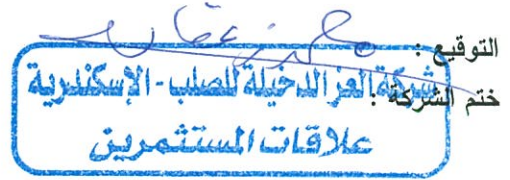 التوقيع :
ختم الشركة :
شركة العز الدخيلة للصلب - الإسكندرية
علاقات المستثمرين